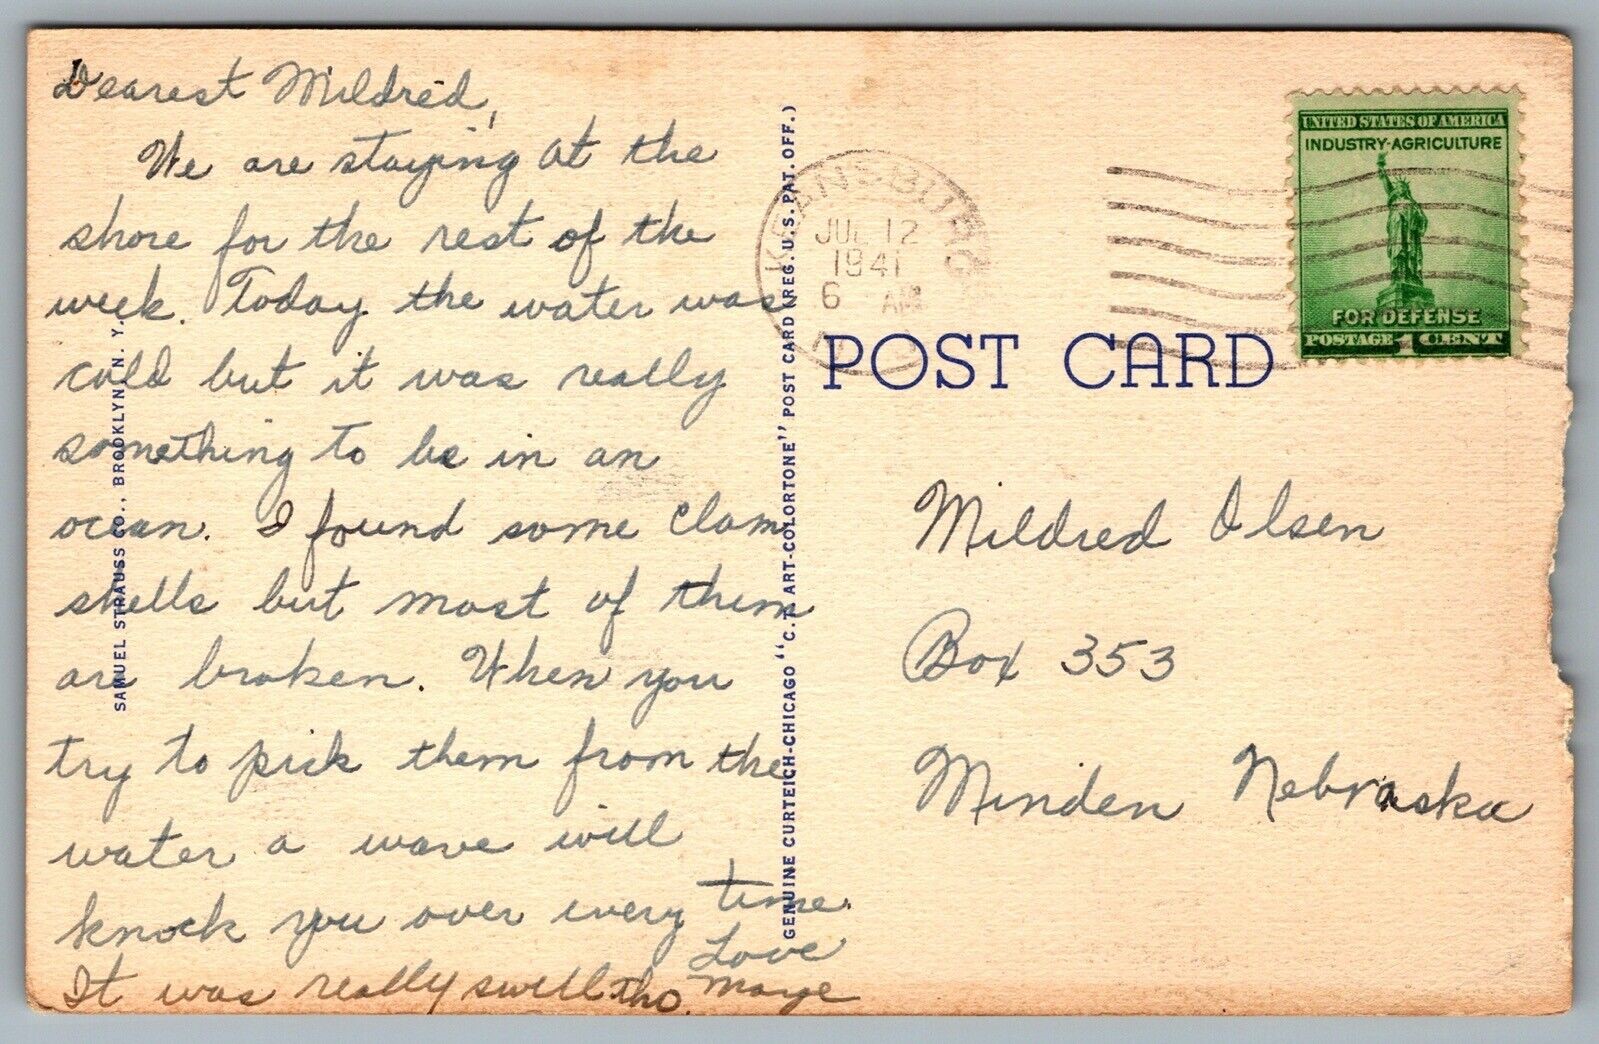 Dearest Mildred,
We are staying at the
shore for the rest of the
week. Today the water was
cold but it was really
something to be in an
ocean. I found some clam
shells but most of them
are broken. When you
try to pick them from the
water a wave will
knock you over every time.
It was really swell tho.
Love
Maye
SAMUEL STRAUSS CO., BROOKLYN, N. Y.
GENUINE CURTEICH-CHICAGO "C. T. ART-COLORTONE" POST CARD (REG. U. S. PAT. OFF.)
KEANSBURG
JUL 12
1941
6 AM
POST CARD
UNITED STATES OF AMERICA
INDUSTRY-AGRICULTURE
FOR DEFENSE
POSTAGE 1 CENT
Mildred Olsen
Box 353
Minden Nebraska